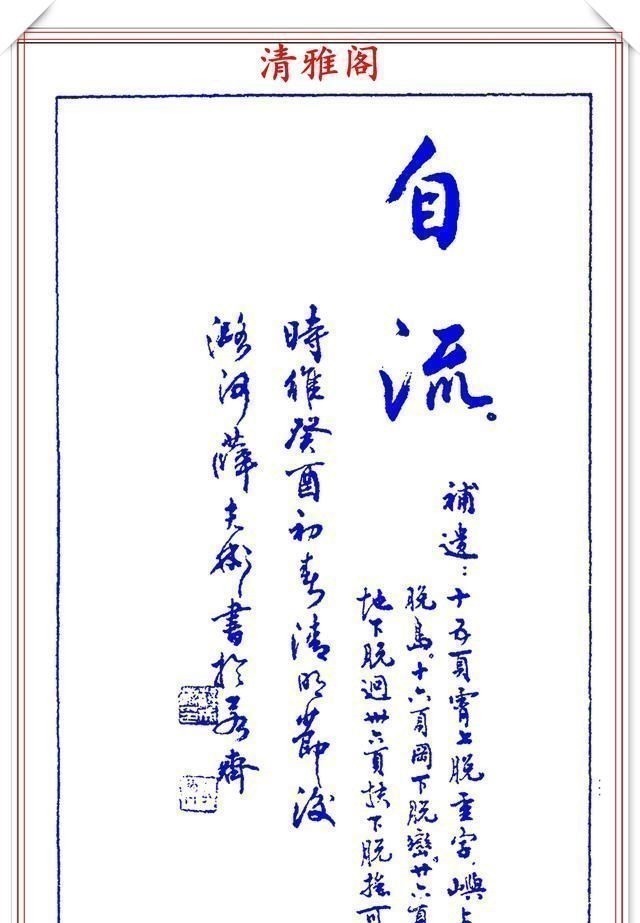 清雅阁
自流。
補遺：十五頁霄上脱重字，嶼上
脱島。十六頁岡下脱巒。廿六頁
地下脱迥卅六頁扶下脱摇可
時維癸酉初春清明節後
潞河薛夫彬書於若齋